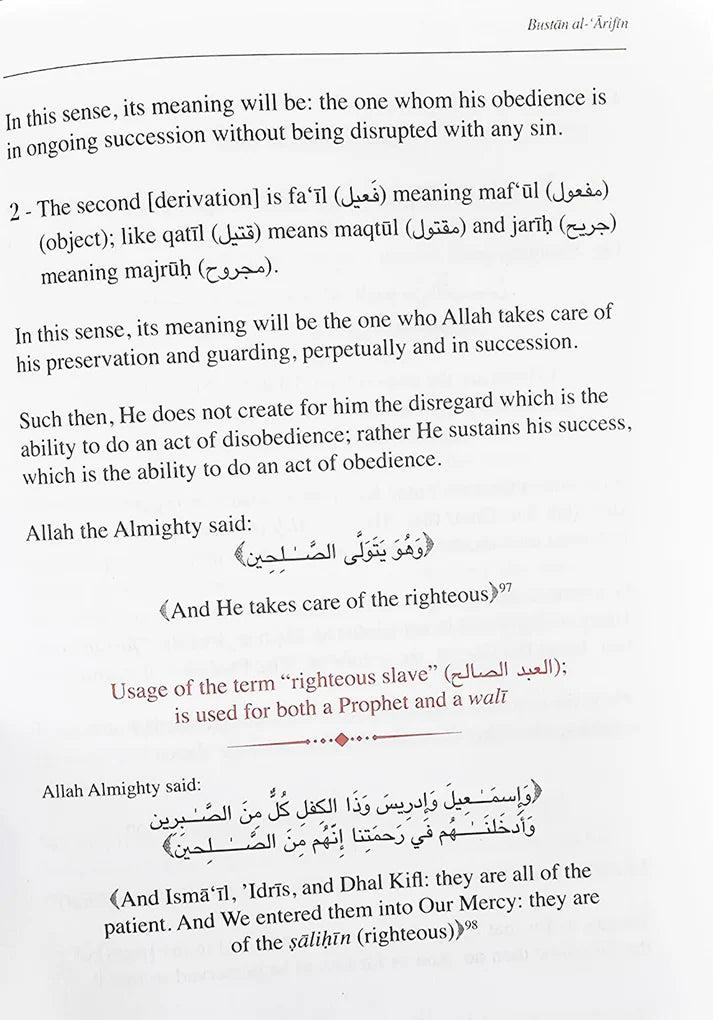 Bustān al-‘Ārifīn
In this sense, its meaning will be: the one whom his obedience is
in ongoing succession without being disrupted with any sin.
2 - The second [derivation] is fa‘īl (فَعيل) meaning maf‘ūl (مفعول)
(object); like qatīl (قتيل) means maqtūl (مقتول) and jarīḥ (جريح)
meaning majrūḥ (مجروح).
In this sense, its meaning will be the one who Allah takes care of
his preservation and guarding, perpetually and in succession.
Such then, He does not create for him the disregard which is the
ability to do an act of disobedience; rather He sustains his success,
which is the ability to do an act of obedience.
Allah the Almighty said:
﴿وَهُوَ يَتَوَلَّى الصَّـٰلِحِين﴾
﴾And He takes care of the righteous﴿97
Usage of the term “righteous slave” (العبد الصالح);
is used for both a Prophet and a walī
Allah Almighty said:
﴿وَإِسمَـٰعِيلَ وَإِدرِيسَ وَذَا الكِفلِ كُلٌّ مِنَ الصَّـٰبِرِين
وَأَدخَلنَـٰهُم فِي رَحمَتِنا إِنَّهُم مِنَ الصَّـٰلِحِينَ﴾
﴾And Ismā‘īl, ’Idrīs, and Dhal Kifl: they are all of the
patient. And We entered them into Our Mercy: they are
of the ṣāliḥīn (righteous)﴿98